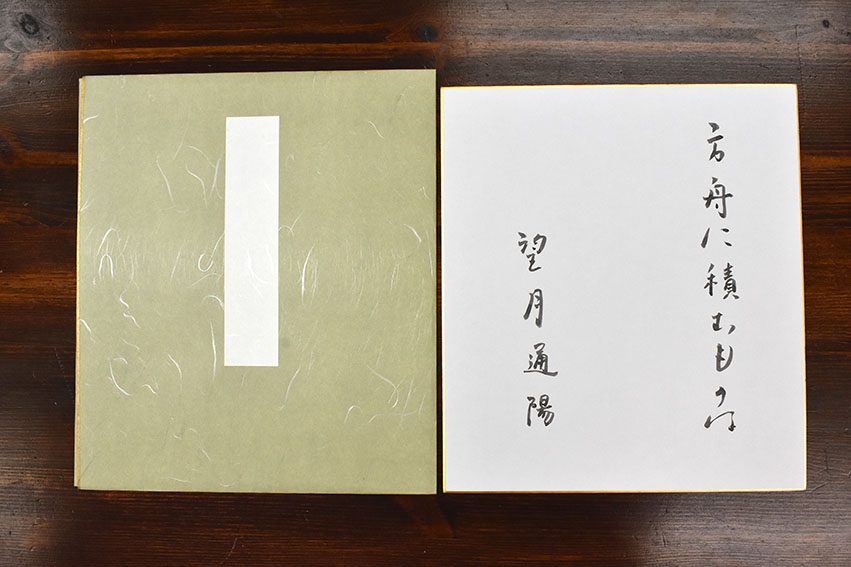 方舟に積むものは
望月通陽